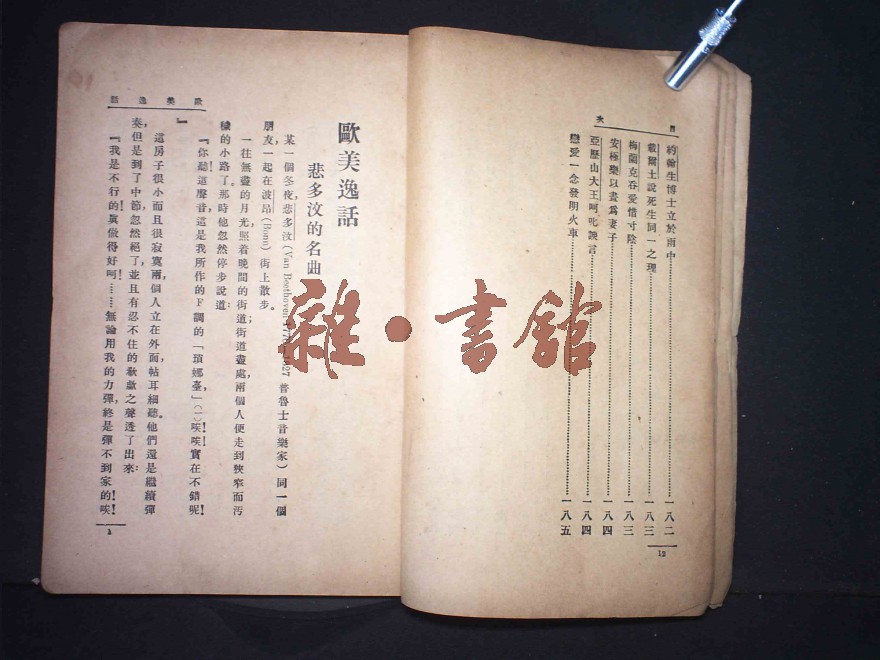 目次
約翰生博士立於雨中……一八二
戴爾士說死生同一之理……一八三
梅蘭克吞愛惜寸陰……一八三
安極樂以畫爲妻子……一八四
亞歷山大王呵叱諛言……一八四
戀愛一念發明火車……一八五
12
歐美逸話
歐美逸話
悲多汶的名曲
某一個冬夜，悲多汶(Van Beethoven 1770-1827 普魯士音樂家)同一個
朋友一起在波昂(Bonn)街上散步。
一往無盡的月光，照着晚間的街道；街道盡處，兩個人便走到狹窄而汚
穢的小路了。那時他忽然停步說道：
『你聽！這聲音，這是我所作的F調的「瑣娜臺」(一)唉！唉！實在不錯呢！
』
這房子很小而且很寂寞，兩個人立在外面，帖耳細聽。他們還是繼續彈
奏，但是到了中節，忽然絕了，並且有忍不住的欷歔之聲透了出來：
『我是不行的！眞做得好呵！……無論用我的力彈，終是彈不到家的！唉！
1
雜·書館